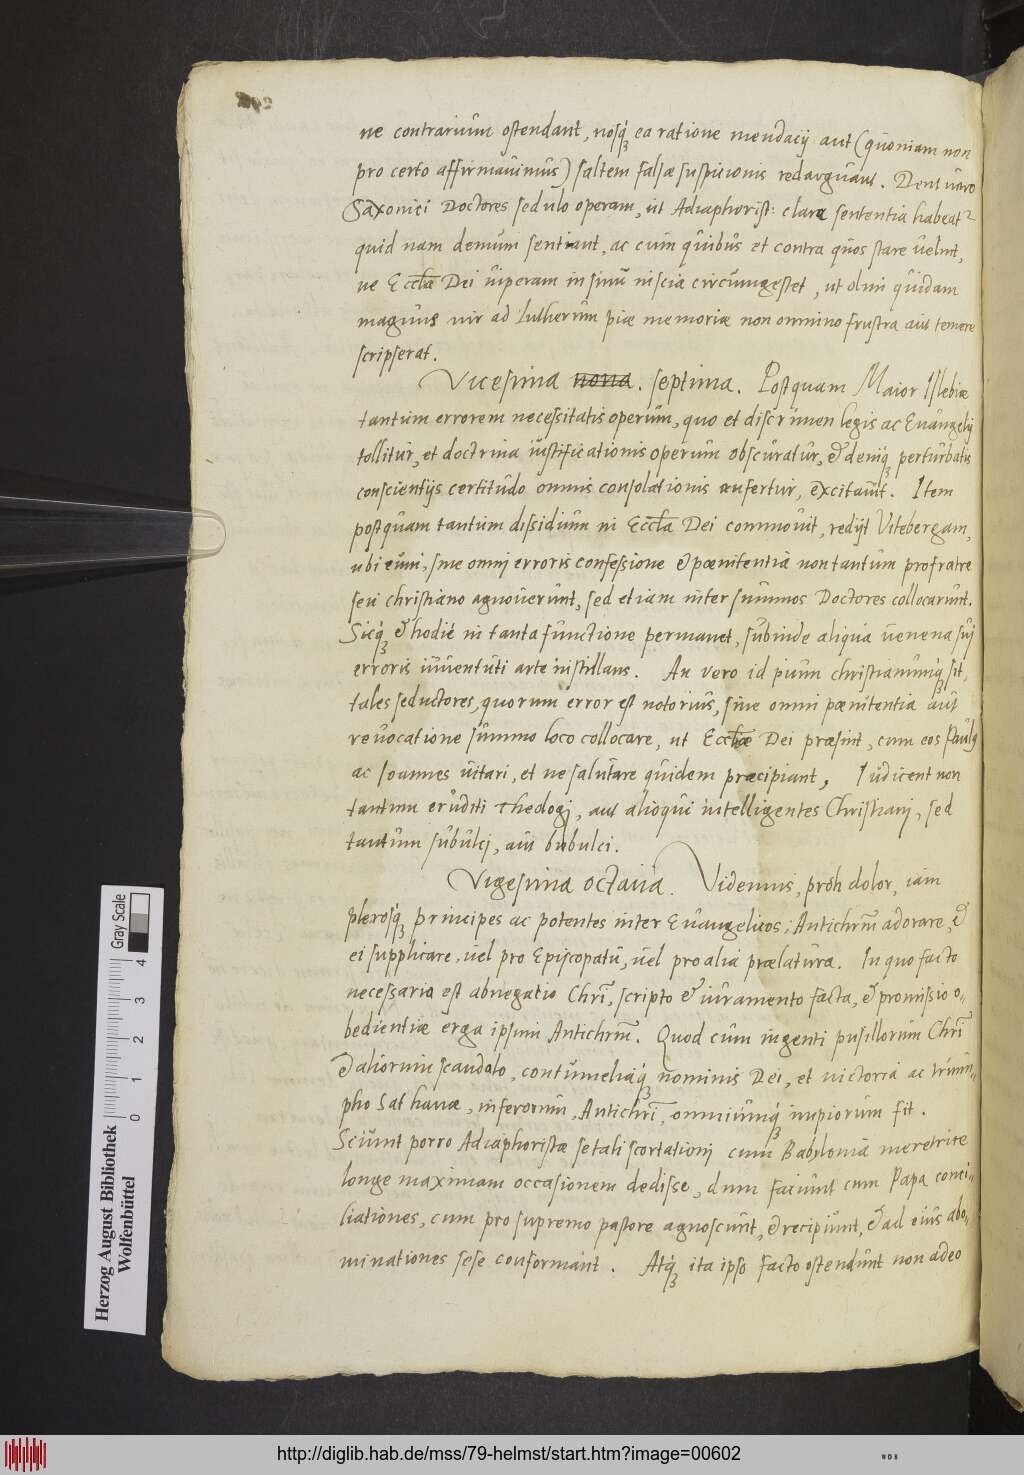 ne contrarium ostendant, nosq́ꝫ ea ratione mendacij aut (quoniam non
pro certo affirmauimus) saltem falsæ suspicionis redarguant. Dent uero
Saxonici Doctores sedulo operam, ut Adiaphorist: clara sententia habeat
quid nam demum sentiant, ac cum quibus et contra quos stare uelint,
ne Eccła Dei uiperam in sinu inscia circumgestet, ut olim quidam
magnus uir ad Lutherum piæ memoriæ non omnino frustra aut temere
scripserat.
Vicesima nona. septima. Postquam Maior Islebiæ
tantum errorem necessitatis operum, quo et discrimen legis ac Euangelij
tollitur, et doctrina iustificationis operum obscuratur, & deniq́ꝫ perturbatis
conscientijs certitudo omnis consolationis aufertur, excitauit. Item
postquam tantum dissidium in Eccła Dei commouit, redijt Vitebergam,
ubi eum, sine omni erroris confessione & pœnitentia non tantum pro fratre
seu christiano agnouerunt, sed etiam inter summos Doctores collocarunt.
Sicq́ꝫ & hodie in tanta functione permanet, subinde aliqua uenena sui
erroris iuuentuti arte instillans. An vero id pium christianumq́ꝫ sit,
tales seductores, quorum error est notorius, sine omni pœnitentia aut
reuocatione summo loco collocare, ut Eccłæ Dei præsint, cum eos Paulus
ac Ioannes uitari, et ne salutare quidem præcipiant, Iudicent non
tantum eruditi theologi, aut alioqui intelligentes Christiani, sed
tantum subulci, aut bubulci.
Vigesima octaua. Videmus, proh dolor, iam
plerosq́ꝫ principes ac potentes inter Euangelicos, Antichrm̄ adorare, &
ei supplicare, uel pro Episcopatu, uel pro alia prælatura. In quo facto
necessario est abnegatio Chrī, scripto & iuramento facta, & promissio o-
bedientiæ erga ipsum Antichrm̄. Quod cum ingenti pusillorum Chrī
& aliorum scandalo, contumeliaq́ꝫ nominis Dei, et uictoria ac trium-
pho Sathanæ, inferorum, Antichrī, omniumq́ꝫ impiorum fit.
Sciunt porro Adiaphoristæ se tali scortationi cum Babylonia meretrice
longe maximam occasionem dedisse, dum faciunt cum Papa conci-
liationes, cum pro supremo pastore agnoscunt, & recipiunt, & ad eius abo-
minationes sese conformant. Atq́ꝫ ita ipso facto ostendunt non adeo
Herzog August Bibliothek
Wolfenbüttel
Gray Scale
0 1 2 3 4
http://diglib.hab.de/mss/79-helmst/start.htm?image=00602